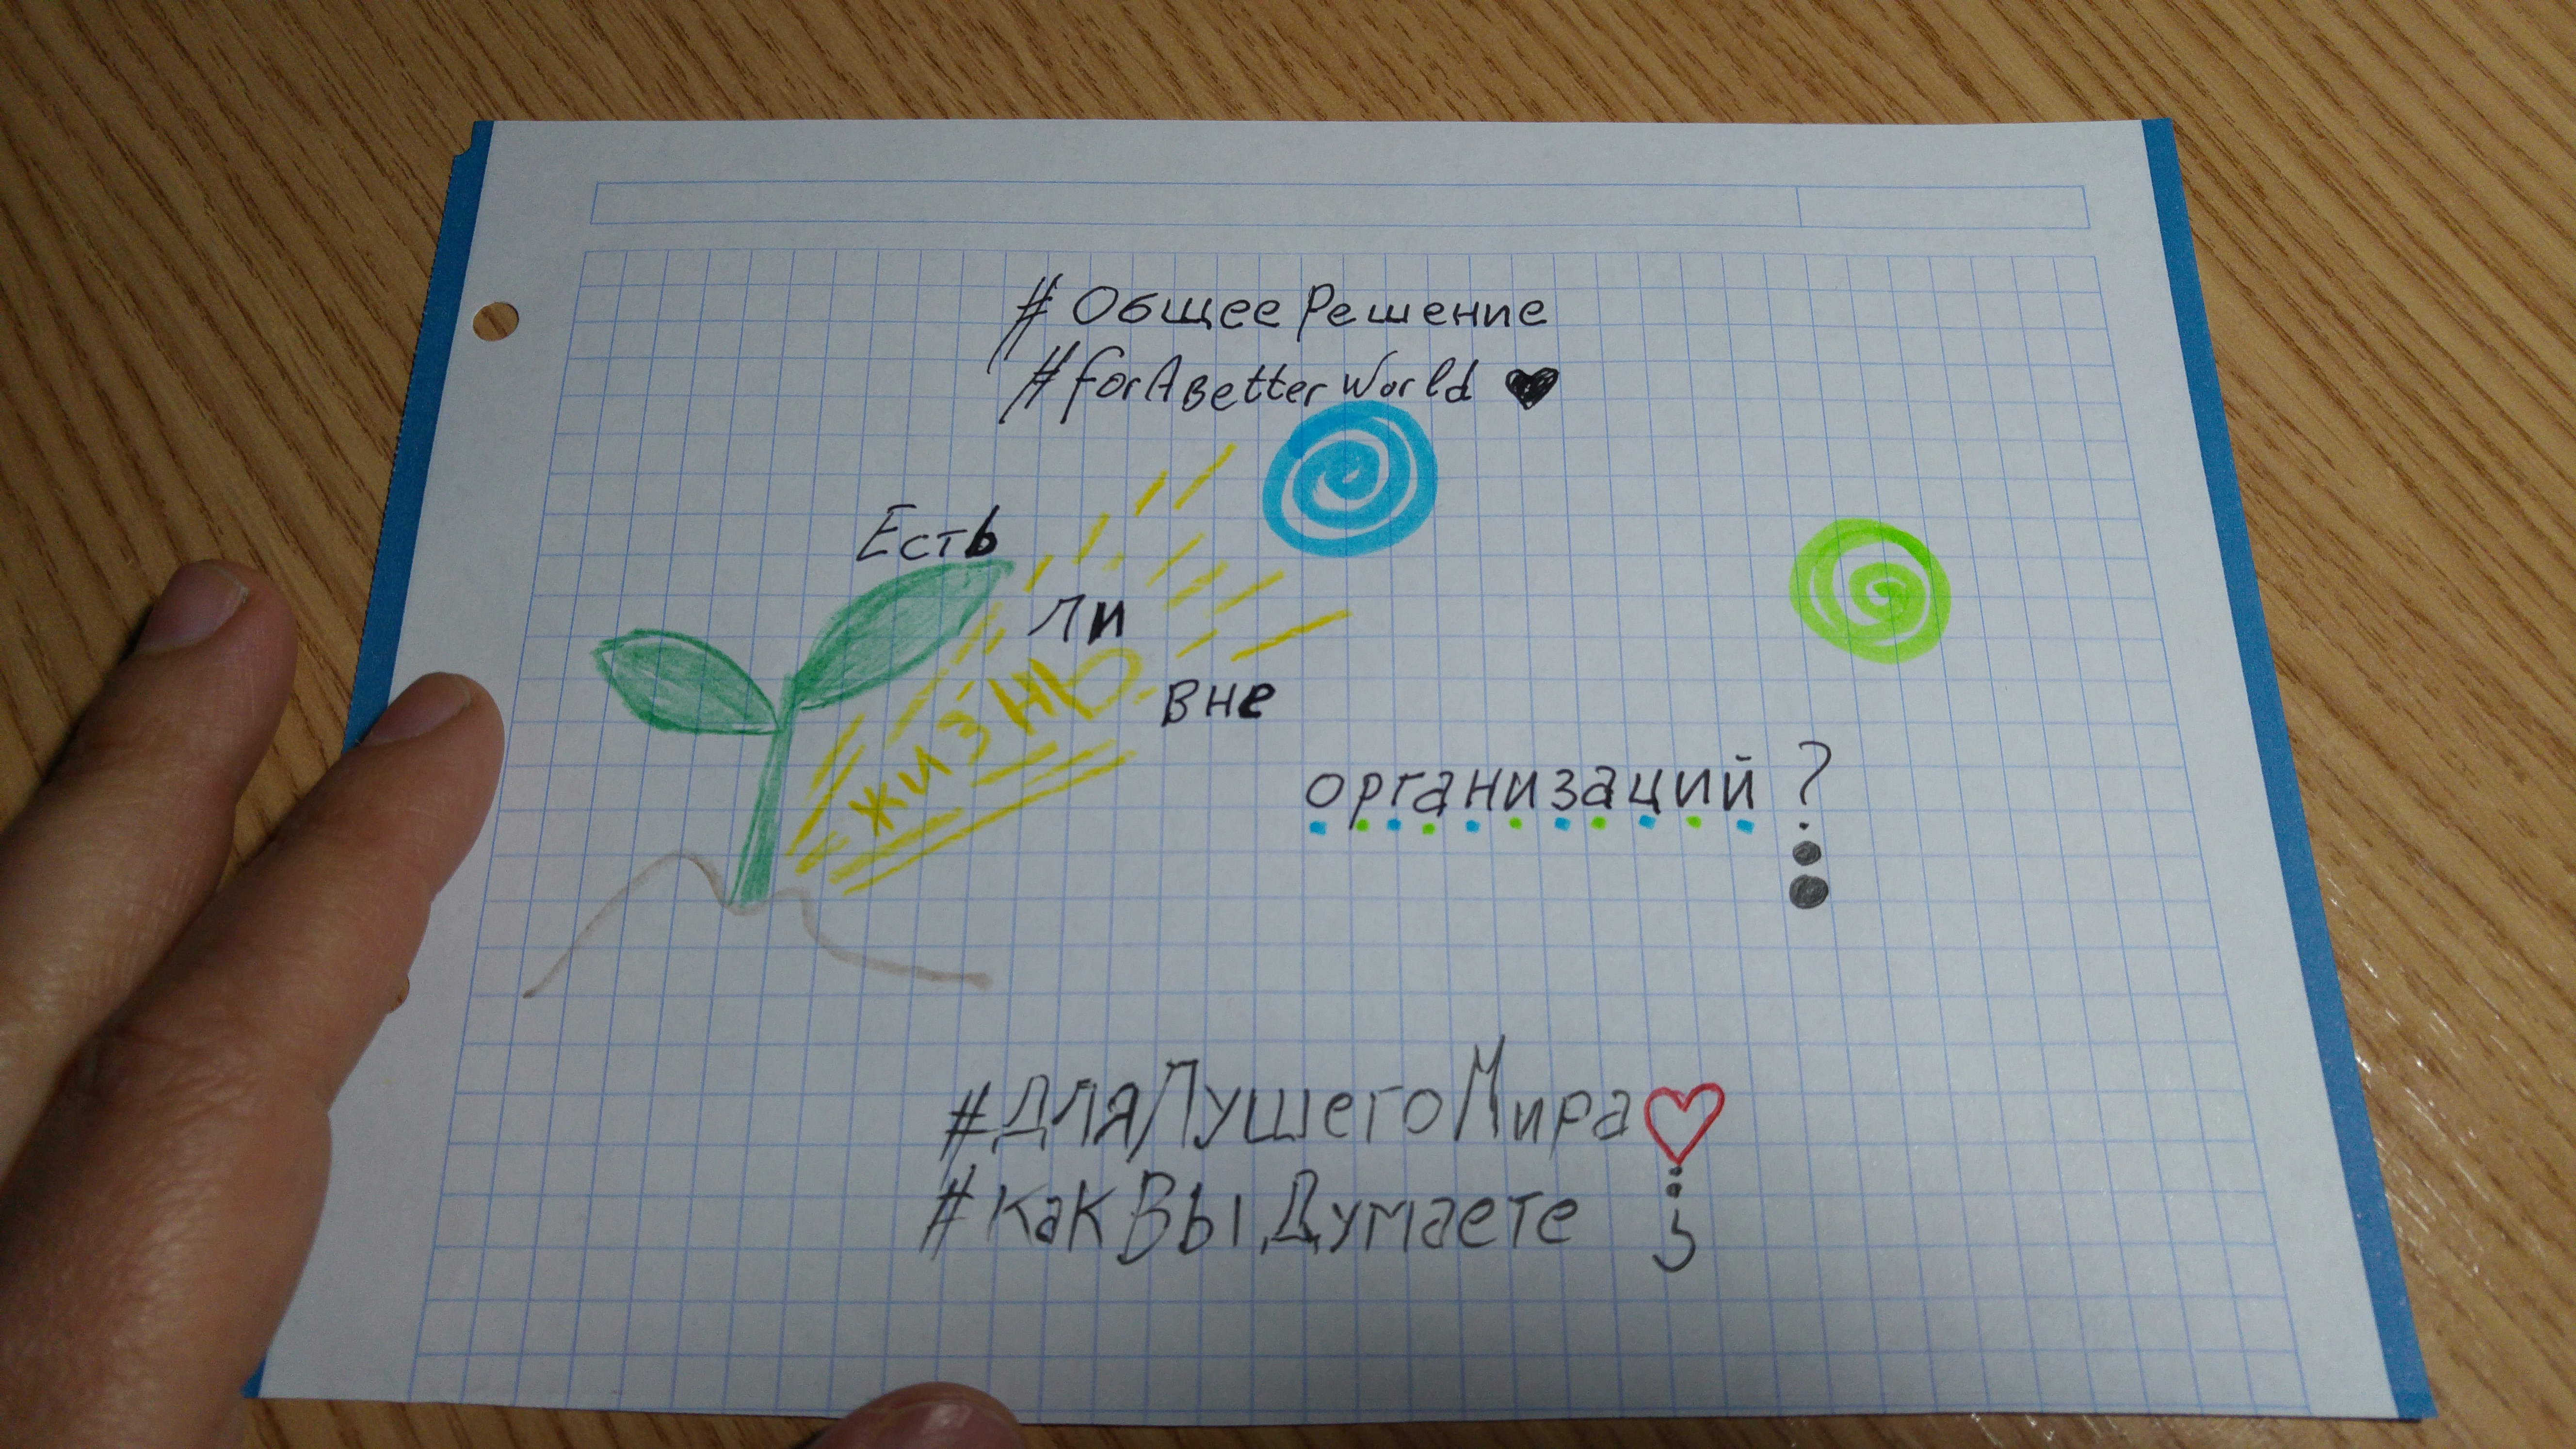 #ОбщееРешение
#forABetterWorld ♥
Есть
ли
жизнь
вне
организаций ?
#дляЛушегоМира♡
#какВыДумаете